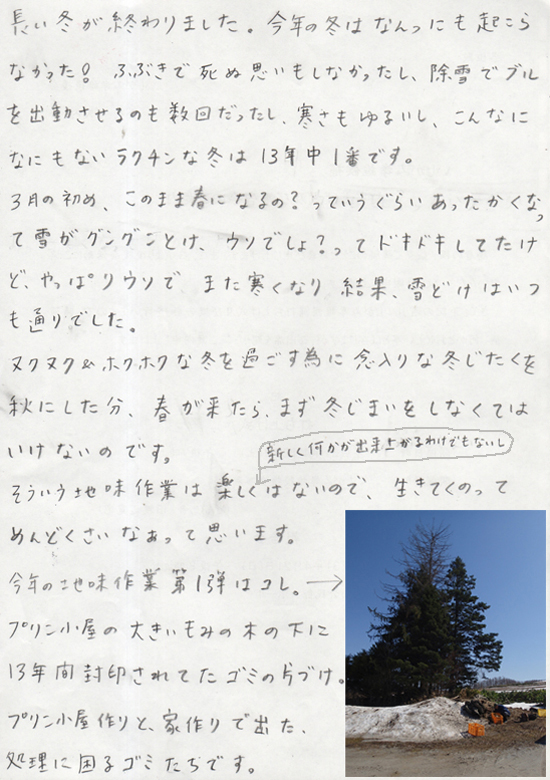 長い冬が終わりました。今年の冬はなんっにも起こら
なかった！ふぶきで死ぬ思いもしなかったし、除雪でブル
を出動させるのも数回だったし、寒さもゆるいし、こんなに
なにもないラクチンな冬は13年中1番です。
3月の初め、このまま春になるの？っていうぐらいあったかくなっ
て雪がグングンとけ、ウソでしょ？ってドキドキしてたけ
ど、やっぱりウソで、また寒くなり結果、雪どけはいつ
も通りでした。
ヌクヌク&ホクホクな冬を過ごす為に念入りな冬じたくを
秋にした分、春が来たら、まず冬じまいをしなくては
いけないのです。
新しく何かが出来上がるわけでもないし
そういう地味作業は楽しくはないので、生きてくのって
めんどくさいなぁって思います。
今年の地味作業第1弾はコレ。→
プリン小屋の大きいもみの木の下に
13年間封印されてたゴミの片づけ。
プリン小屋作りと、家作りで出た、
処理に困るゴミたちです。